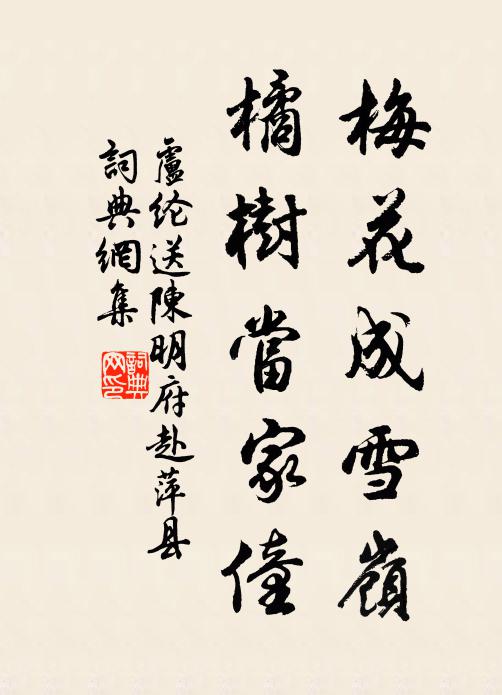 梅花成雪嶺
橘樹當家僮
盧纶送陳明府赴萍县
詞典網集
詞典网印